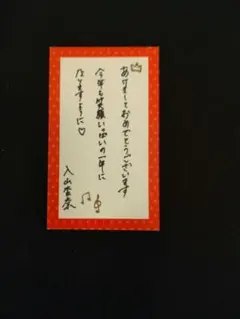 あけましておめでとうございます
今年も笑顔いっぱいの一年に
なりますように♡
入山杏奈